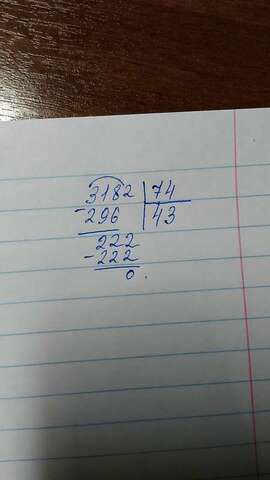 3182 74
-296 43
222
-222
0.